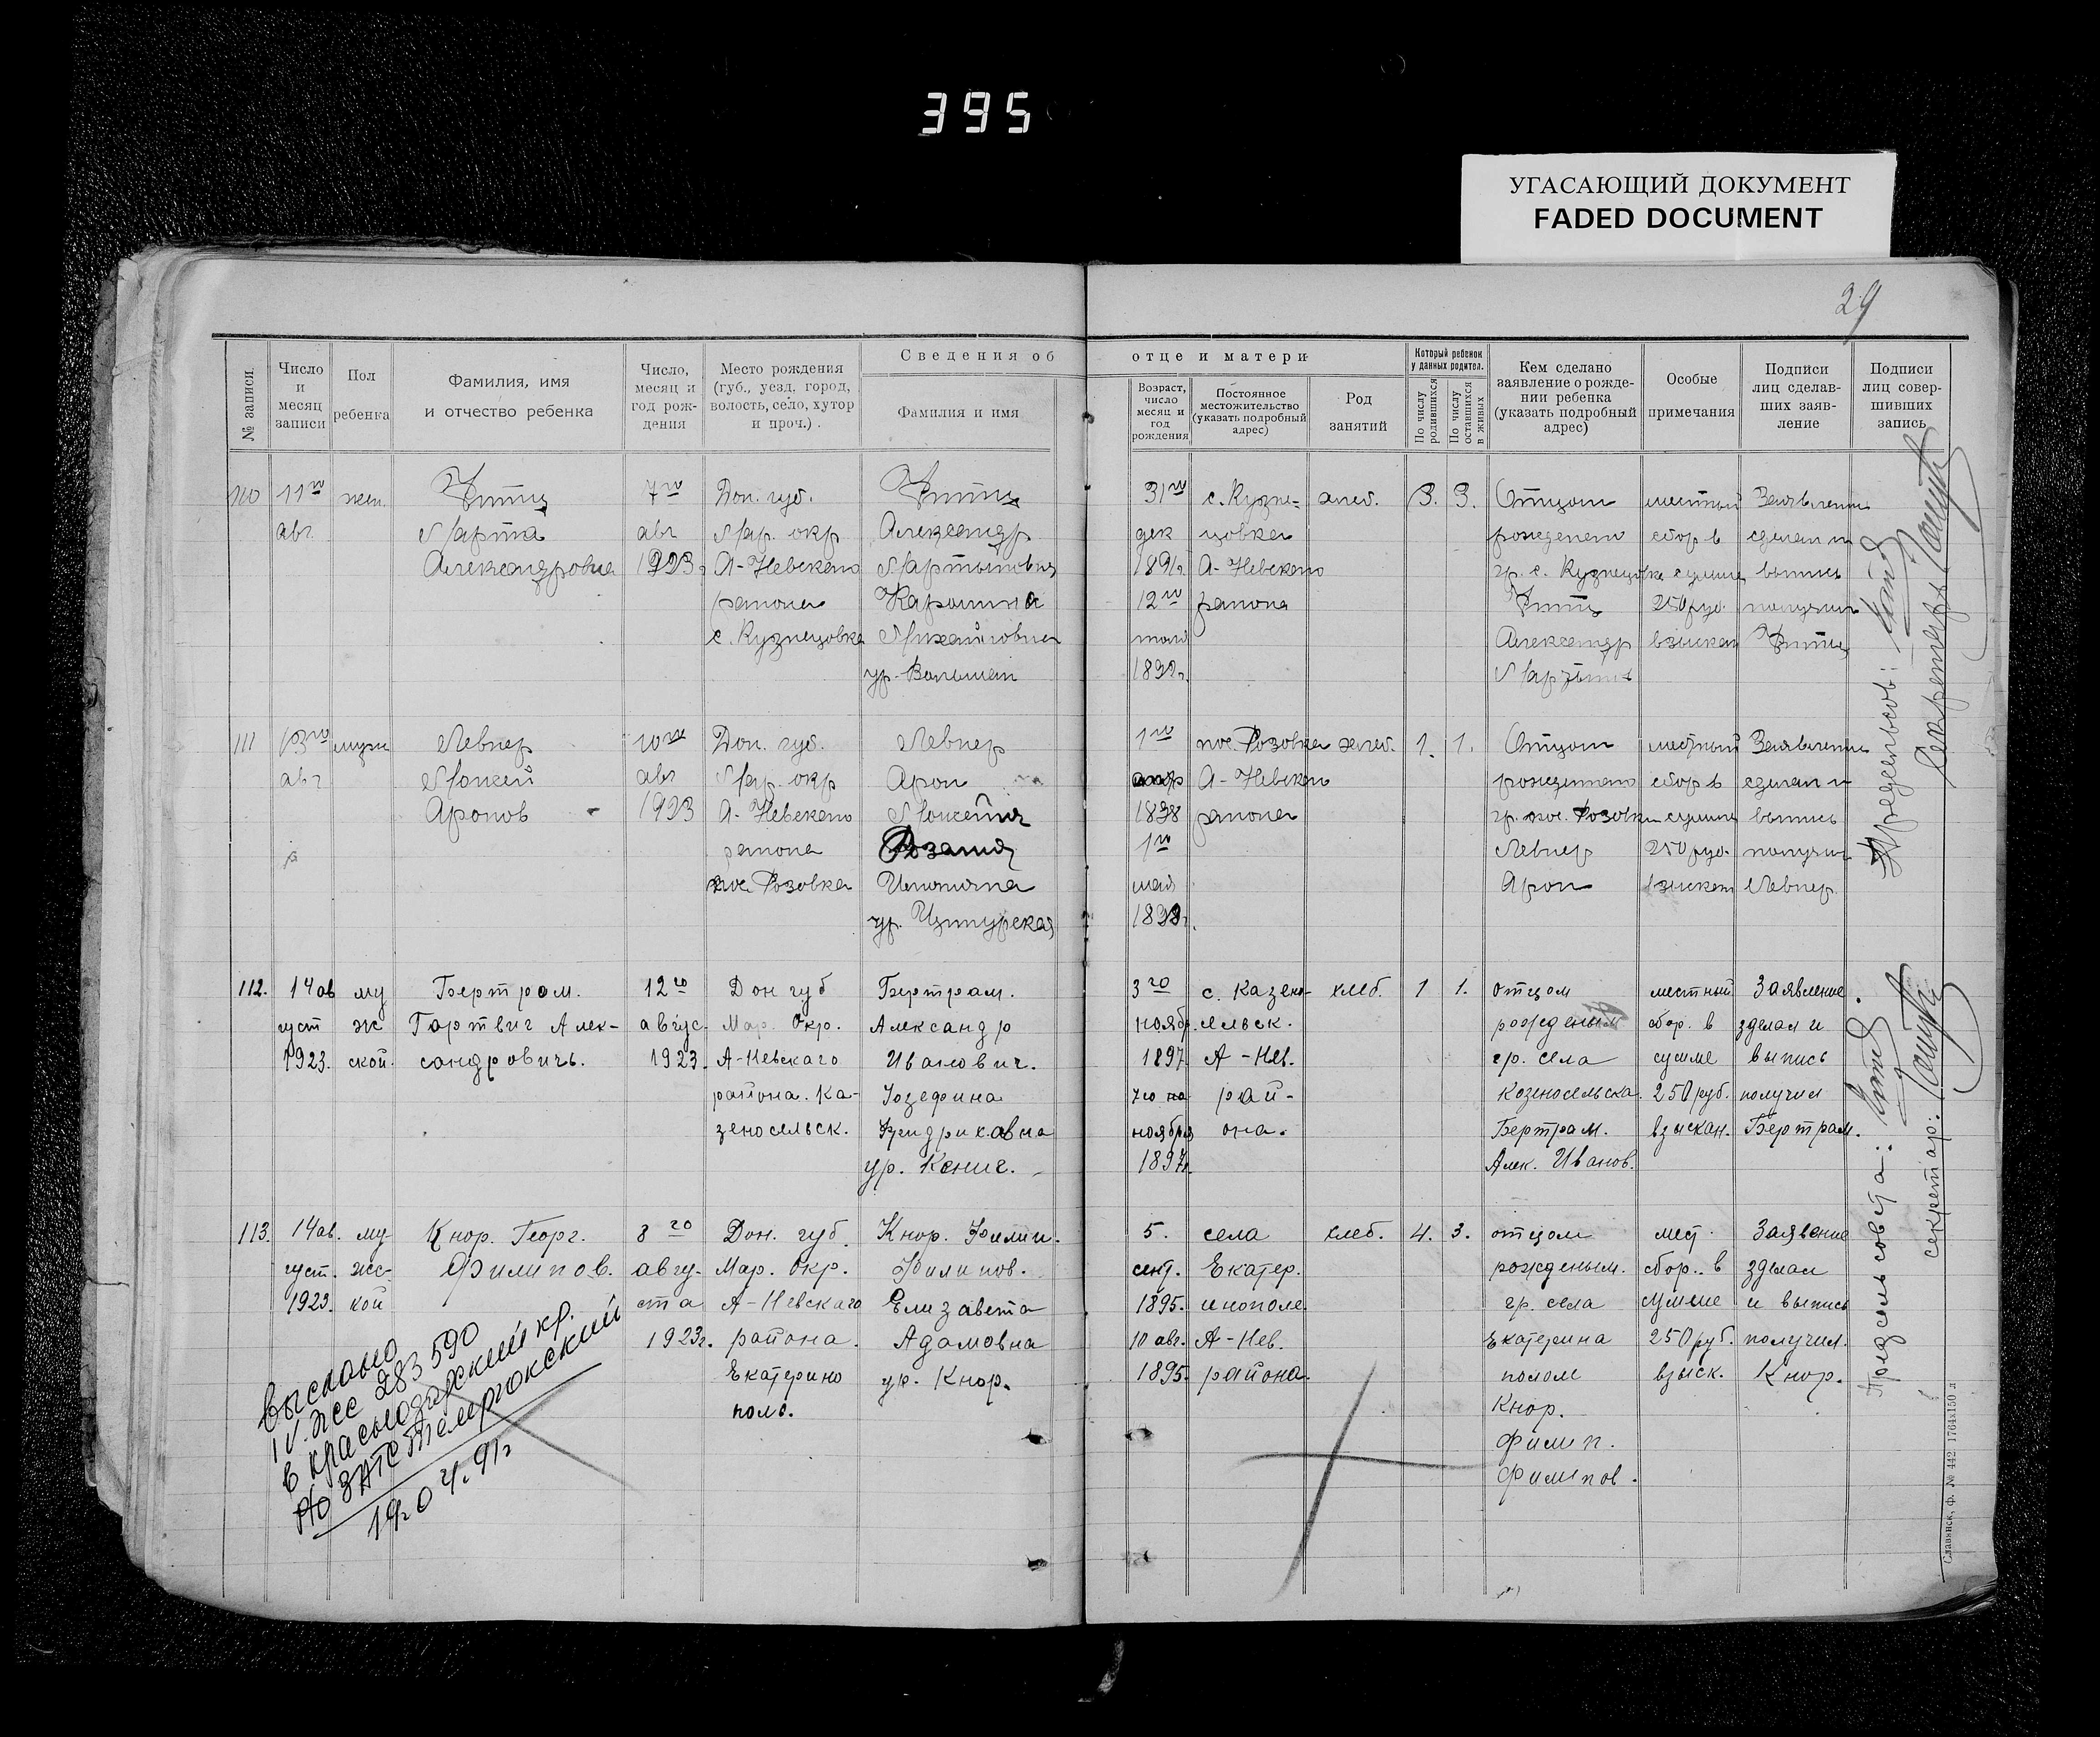 395
УГАСАЮЩИЙ ДОКУМЕНТ
FADED DOCUMENT
29
№ записи
Число и месяц записи
Пол ребенка
Фамилия, имя и отчество ребенка
Число, месяц и год рождения
Место рождения (губ., уезд. город, волость, село, хутор и проч.).
Сведения об отце и матери
Фамилия и имя
Возраст, число месяц и год рождения
Постоянное местожительство (указать подробный адрес)
Род занятий
Который ребенок у данных родител.
По числу родившихся
По числу оставшихся в живых
Кем сделано заявление о рождении ребенка (указать подробный адрес)
Особые примечания
Подписи лиц сделавших заявление
Подписи лиц совершивших запись
110
11го
авг.
жен.
Марта
Александровна
7го
авг
1923г
Дон. губ.
Мар. окр
А-Невского
района
с. Кузнецовка
Александр
Мартынович
Каролина
Михайловна
ур.
31го
дек
1891г
12го
с. Кузне-
цовка
А-Невского
района
хлеб.
3.
3.
Отцом
гр. с. Кузнецовка
Александр
местный
сбор в
сумме
250 руб.
взыскан
Заявление
сделал и
выпись
получил
111
13го
авг
муж
Левнер
Моисей
Аронов
10го
авг
1923
Дон. губ.
Мар. окр
А-Невского
района
пос. Розовка
Левнер
Арон
Розалия
ур.
1го
1го
мая
пос. Розовка
А-Невского
района
хлеб.
1.
1.
Отцом
гр. пос. Розовки
Левнер
Арон
местный
сбор в
сумме
250 руб.
взыскан
Заявление
сделал и
выпись
получил
Левнер.
Секретарь:
112.
14 ав
густ
1923.
му
ж
ской.
Бертром.
Гартвиг Алек-
сандровичь.
12го
авгус.
1923.
Дон губ
Мар. Окр.
А-Невскаго
района. Ка-
зеносельск.
Бертрам.
Александр
Иванович.
Юзефина
ур. Кениг.
3го
ноябр.
1897
7го
ноября
1897г.
с. Казено-
сельск.
А-Нев.
рай-
она.
хлеб.
1
1.
отцом
рожденым
гр. села
Козеносельска.
Бертрам.
Алек. Иванов.
местный
сбор. в
сумме
250 руб.
взыскан.
Заявление
зделал и
выпись
получил
Бертрам.
113.
14 ав.
густ.
1923.
му
жс-
кой
Кнор. Георг.
Филипов.
8го
авгу-
ста
1923г.
Дон. губ.
Мар. Окр.
А-Невскаго
района.
Екатерино
поль.
Кнор. Филип.
Филипов.
Елизавета
Адамовна
ур. Кнор.
5.
сент.
1895.
10 авг.
1895.
села
Екатер.
инополе
А-Нев.
района.
хлеб.
4.
3.
отцом
рожденым.
гр. села
Екатерина
полом
Кнор.
Филип.
Филипов.
мест.
сбор. в
сумме
250 руб.
взыск.
Заявение
зделал
и выпись
получил.
Кнор.
Предсельсовета:
секретар:
выслано
IV-ЖС 283590
в краснодарский кр.
по ЗАГС Темрюкский
19.04.91г
Славянск, ф. № 442 1764х150 л